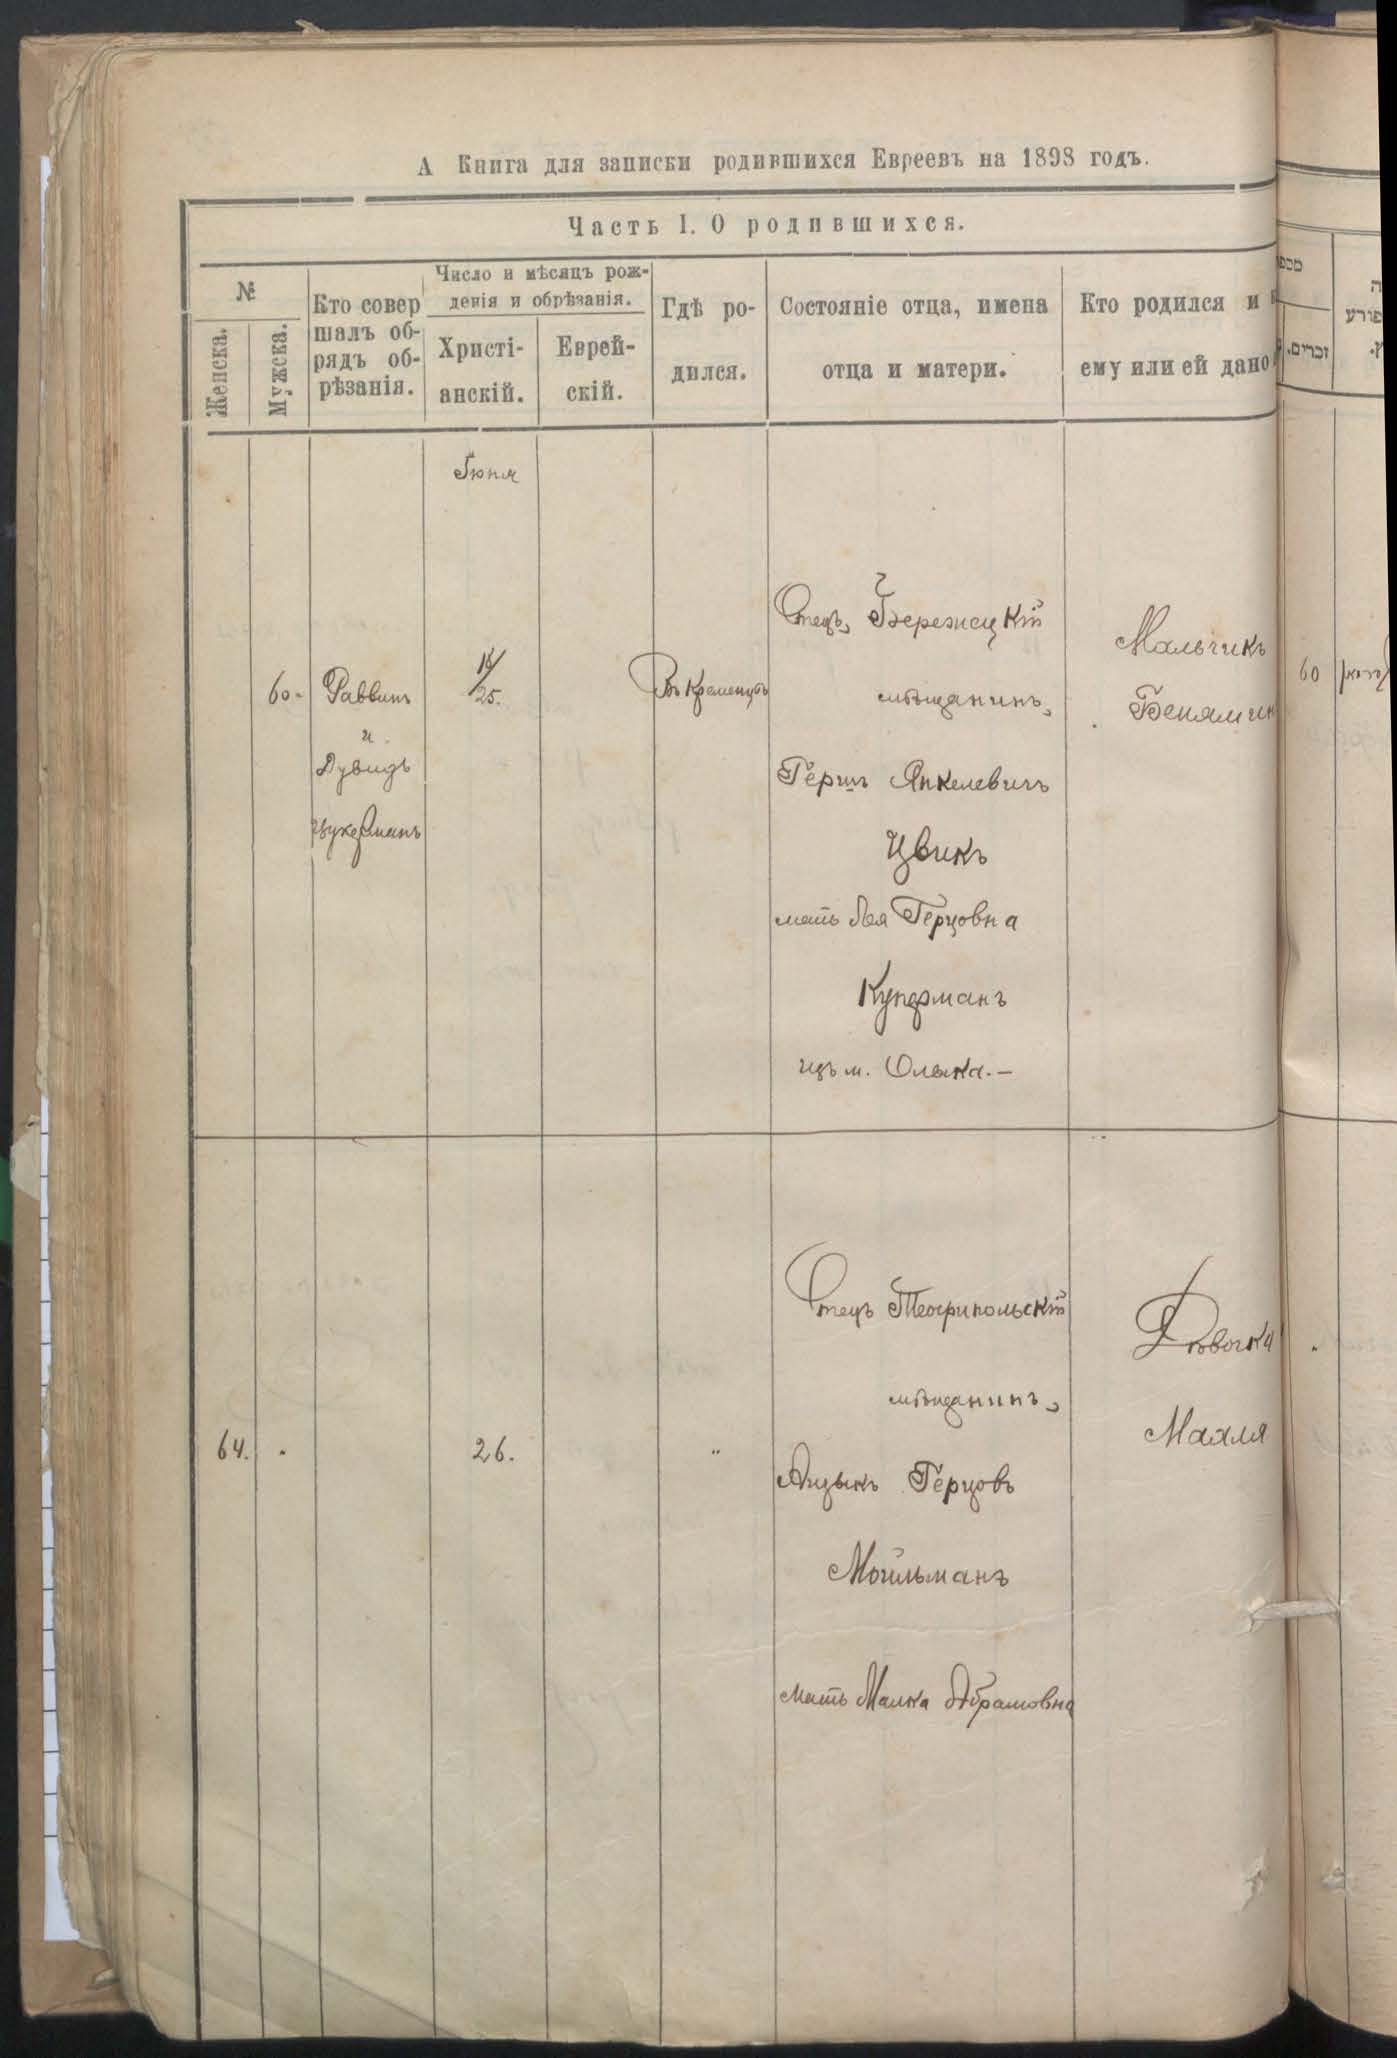 А Книга для записки родившихся Евреевъ на 1898 годъ.
Часть I. О родившихся.
№
Женска.
Мужска.
Кто совер
шалъ об-
рядъ об-
рѣзанія.
Число и мѣсяцъ рож-
денія и обрѣзанія.
Христі-
анскій.
Еврей-
скій.
Гдѣ ро-
дился.
Состояніе отца, имена
отца и матери.
Кто родился и
ему или ей дано
זכרים.
Іюня
60-
Раввинъ
и
Дувидъ
Цукерманъ
25.
Въ Кременцѣ
Отецъ, Бережецкій
мѣщанинъ,
Гершъ Янкелевичъ
Цвикъ
мать Бая Герцовна
Куперманъ
изъ м. Олыка.—
Мальчикъ
Бенямин
60
64.
26.
"
Отецъ Теофипольскій
мѣщанинъ,
Айзыкъ Герцовъ
Могильманъ
мать Малка Абрамовна
Дѣвочка
Маля